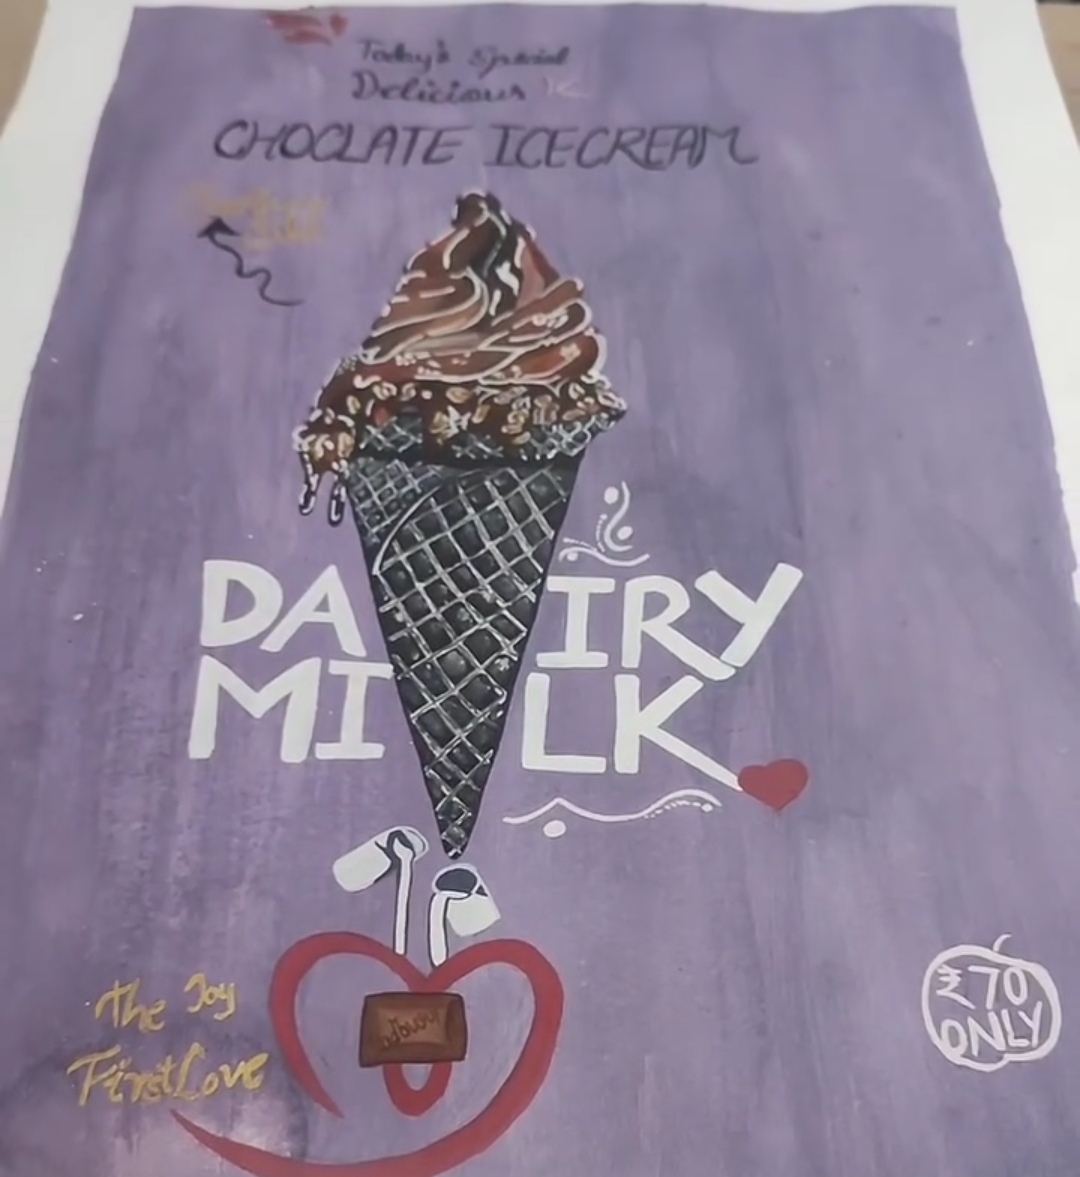 Today's Special
Delicious
CHOCLATE ICECREAM
DAIRY
MILK
The Joy
First Love
₹70
ONLY